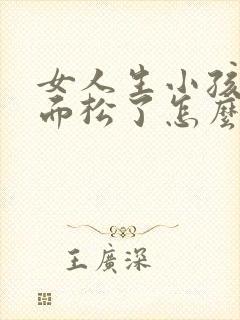 女人生小孩
而松了怎麼
王廣深